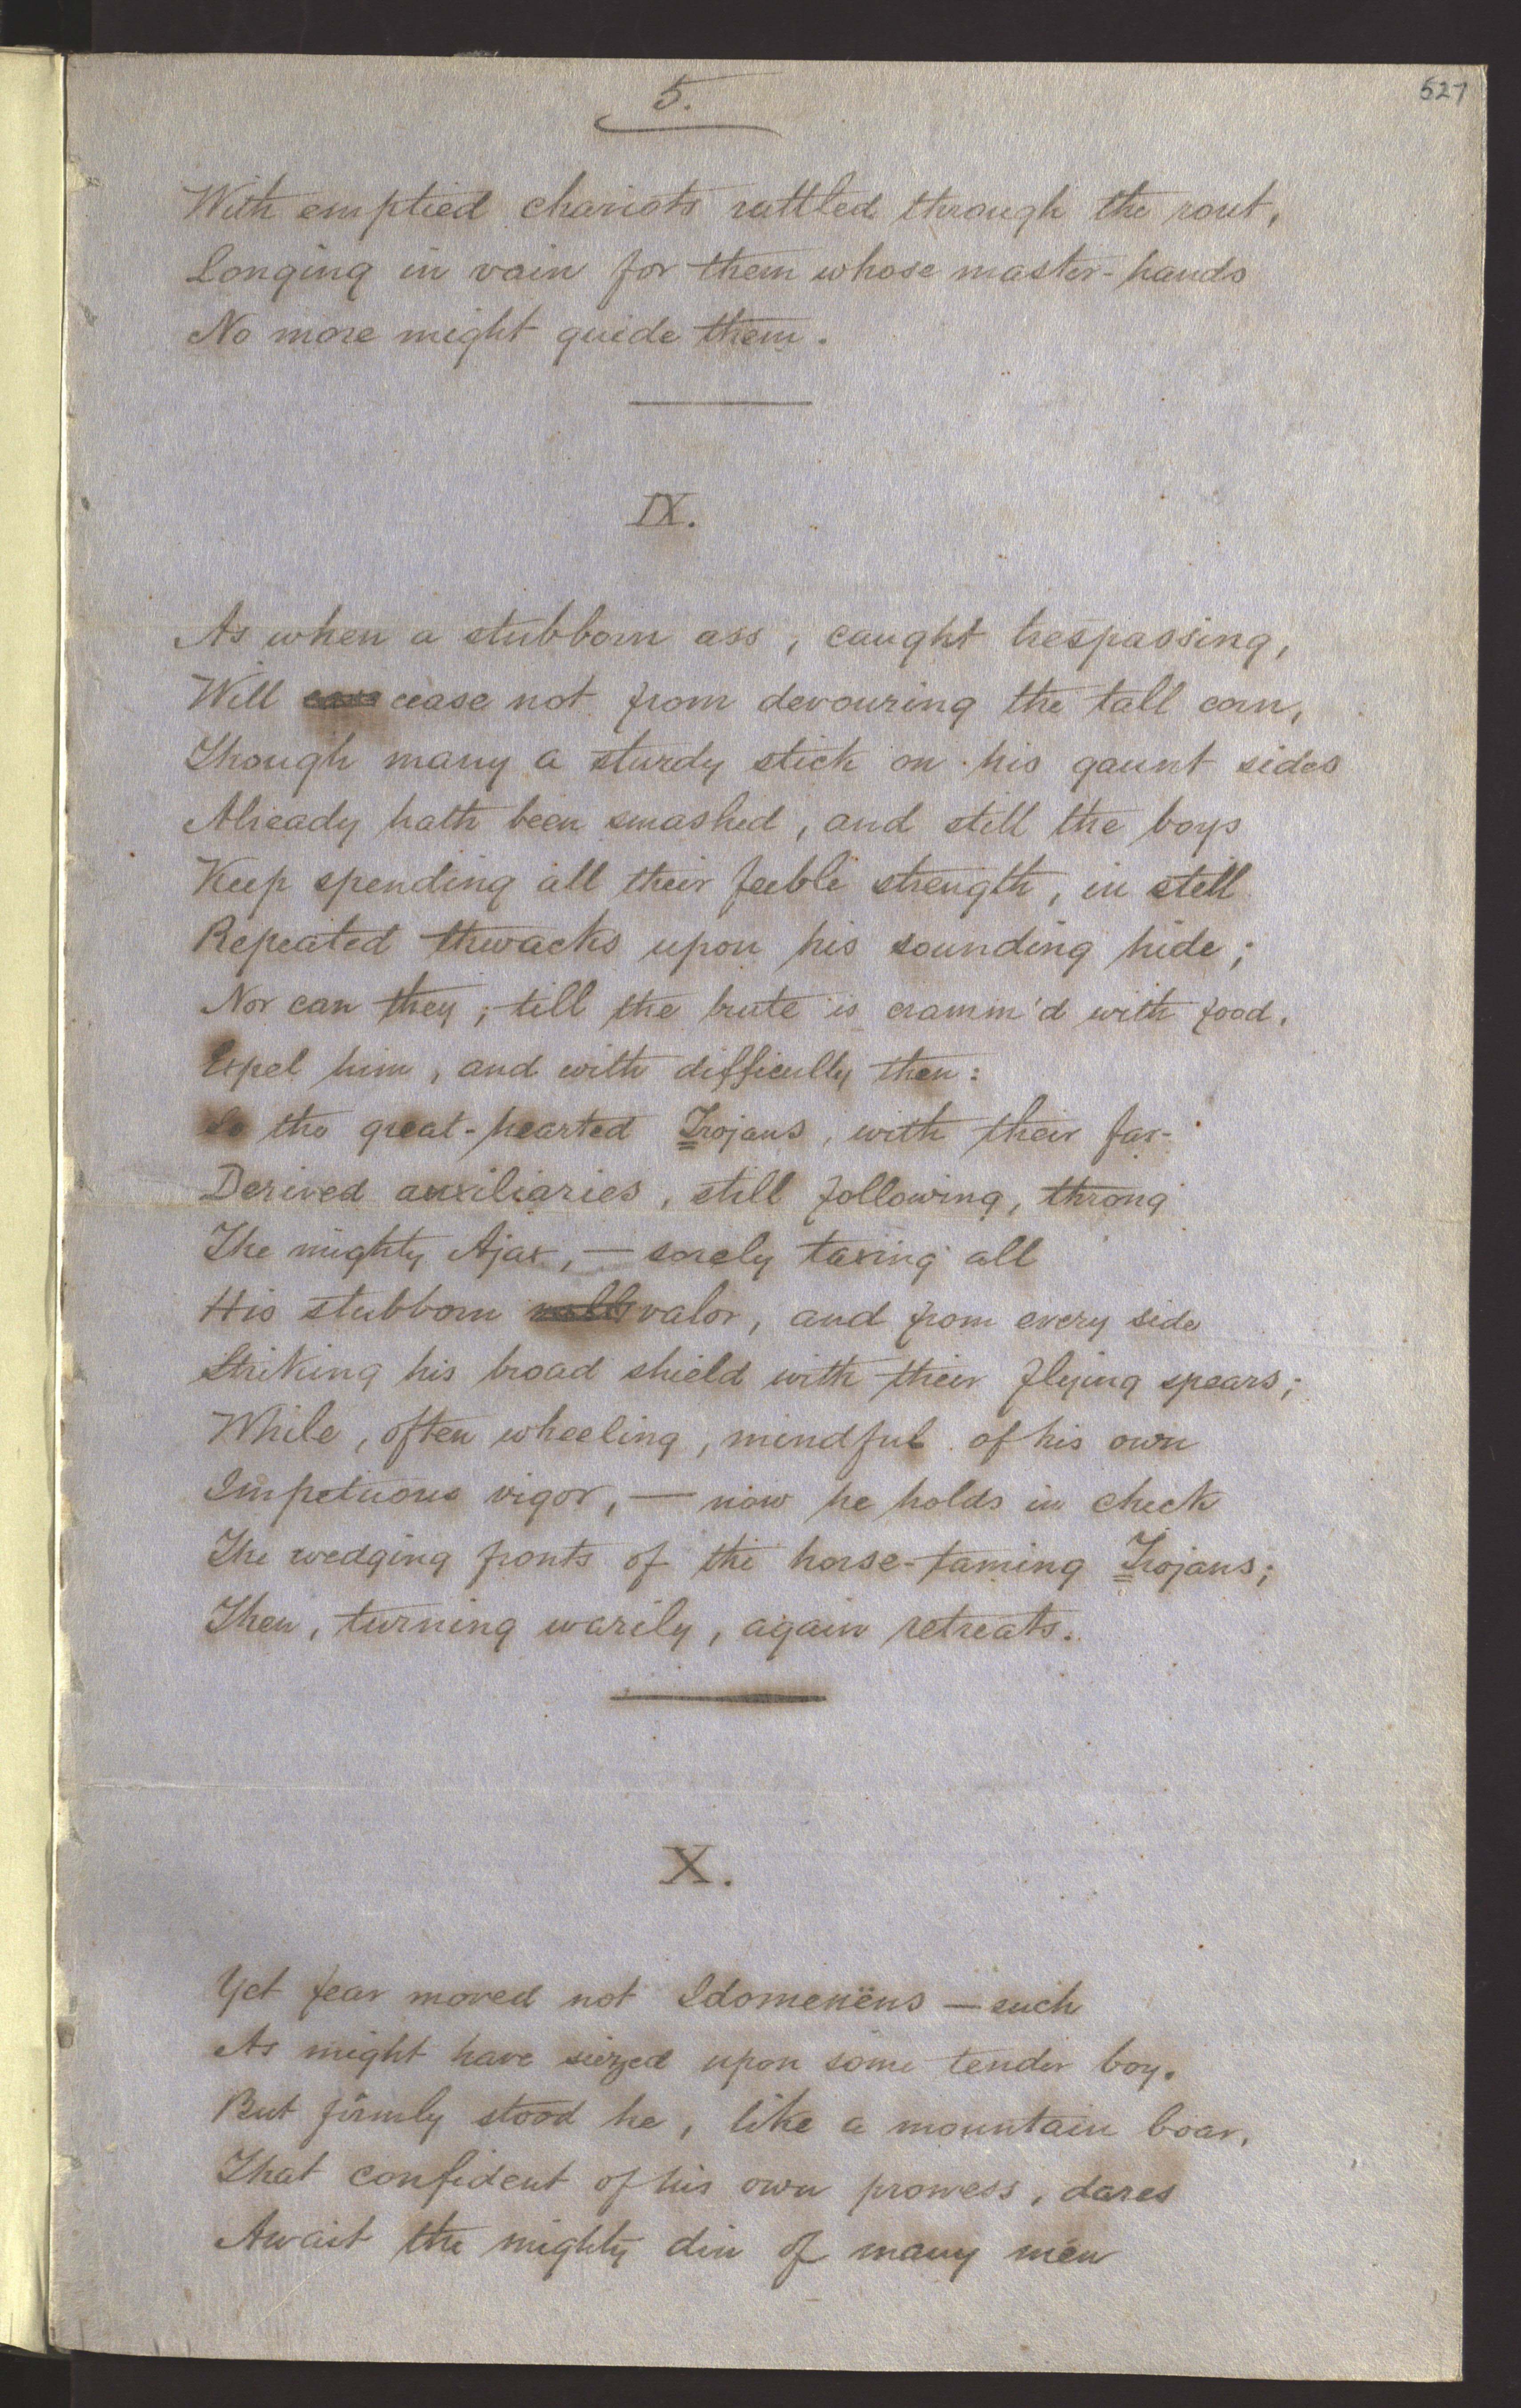 5.
527
With emptied chariots rattled through the rout,
Longing in vain for them whose master-hands
No more might guide them.
IX.
As when a stubborn ass, caught trespassing,
Will cease not from devouring the tall corn,
Though many a sturdy stick on his gaunt sides
Already hath been smashed, and still the boys
Keep spending all their feeble strength, in still
Repeated thwacks upon his sounding hide;
Nor can they, till the brute is cramm'd with food,
Expel him, and with difficulty then:
So the great-hearted Trojans, with their far-
Derived auxiliaries, still following, throng
The mighty Ajax, — sorely taxing all
His stubborn valor, and from every side
Striking his broad shield with their flying spears;
While, often wheeling, mindful of his own
Impetuous vigor, — now he holds in check
The wedging fronts of the horse-taming Trojans;
Then, turning warily, again retreats.
X.
Yet fear moved not Idomenëus — such
As might have seized upon some tender boy.
But firmly stood he, like a mountain boar,
That confident of his own prowess, dares
Await the mighty din of many men